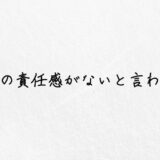 の責任感がないと言わ